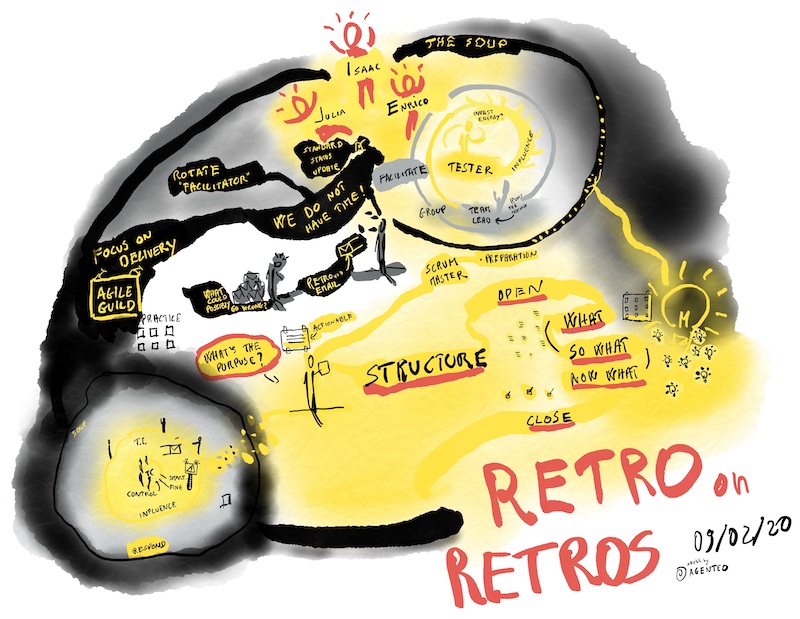 THE SOUP
ISAAC
JULIA
ENRICO
INVEST
ENERGY?
INFLUENCE
TESTER
STANDARD
STATUS
UPDATE
FACILITATE
ROTATE
"FACILITATOR"
WE DO NOT
HAVE TIME!
GROUP
TEAM
LEAD
FOCUS ON
DELIVERY
AGILE
GUILD
PRACTICE
WHAT
COULD
POSSIBLY
GO WRONG?
RETRO VIA
EMAIL
SCRUM
MASTER
PREPARATION
OPEN
ACTIONABLE
WHAT'S THE
PURPOSE?
STRUCTURE
WHAT
SO WHAT
NOW WHAT
M
CLOSE
SOUP
T.L.
CONTROL
INFLUENCE
RESPOND
RETRO on
RETROS
09/02/20
@AGENTEO